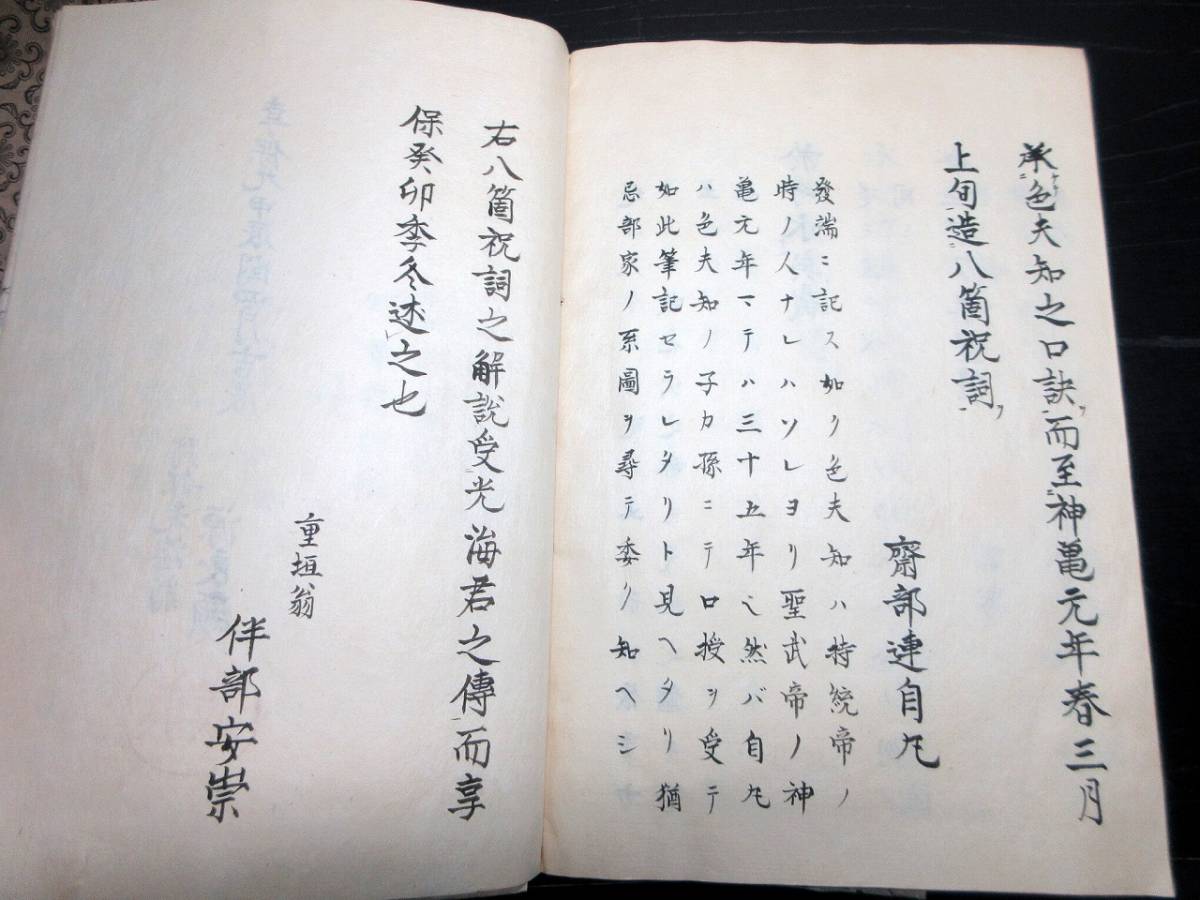 承色夫知之口訣而至神亀元年春三月
上旬造八箇祝詞
齋部連自凡
發端ニ記ス如ク色夫知ハ持統帝ノ
時ノ人ナレハソレヨリ聖武帝ノ神
亀元年マテハ三十五年也然バ自凡
ハ色夫知ノ子カ孫ニテ口授ヲ受テ
如此筆記セラレタリト見ヘタリ猶
忌部家ノ系圖ヲ尋テ委ク知ヘシ
右八箇祝詞之解説受光海君之傳而享
保癸卯季冬述之也
重垣翁
伴部安崇